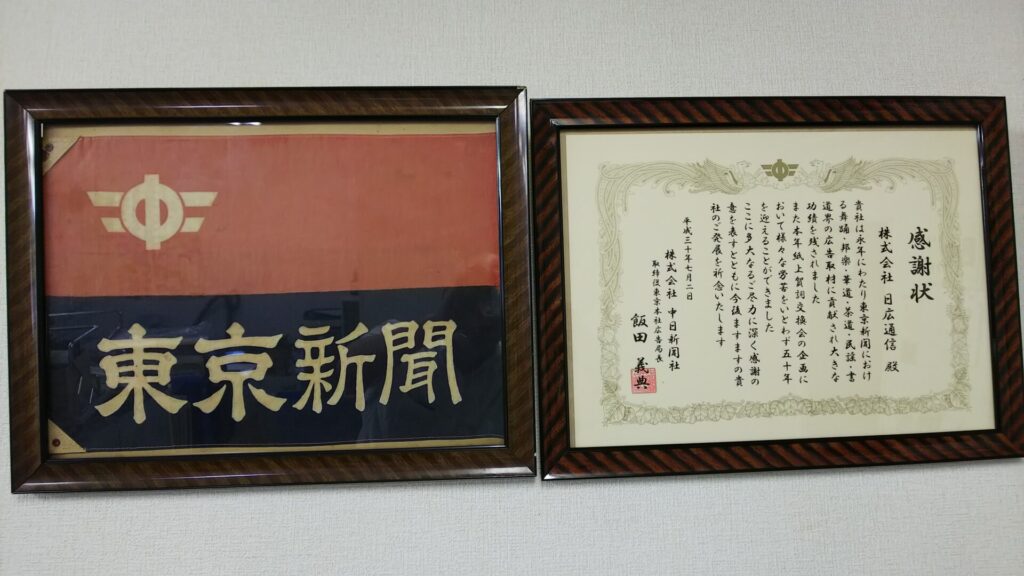 東京新聞
感謝状
株式会社 日広通信 殿
貴社は永年にわたり東京新聞におけ
る舞踊・邦楽・華道・茶道・民謡・書
道界の広告取材に貢献され大きな
功績を残されました
また本年紙上賀詞交換会の企画に
おいて様々な労苦をいとわず五十年
を迎えることができました
ここに多大なるご尽力に深く感謝の
意を表すとともに今後ますますの貴
社のご発展を祈念いたします
平成三十年七月二日
株式会社 中日新聞社
取締役東京本社広告局長
飯田 義典